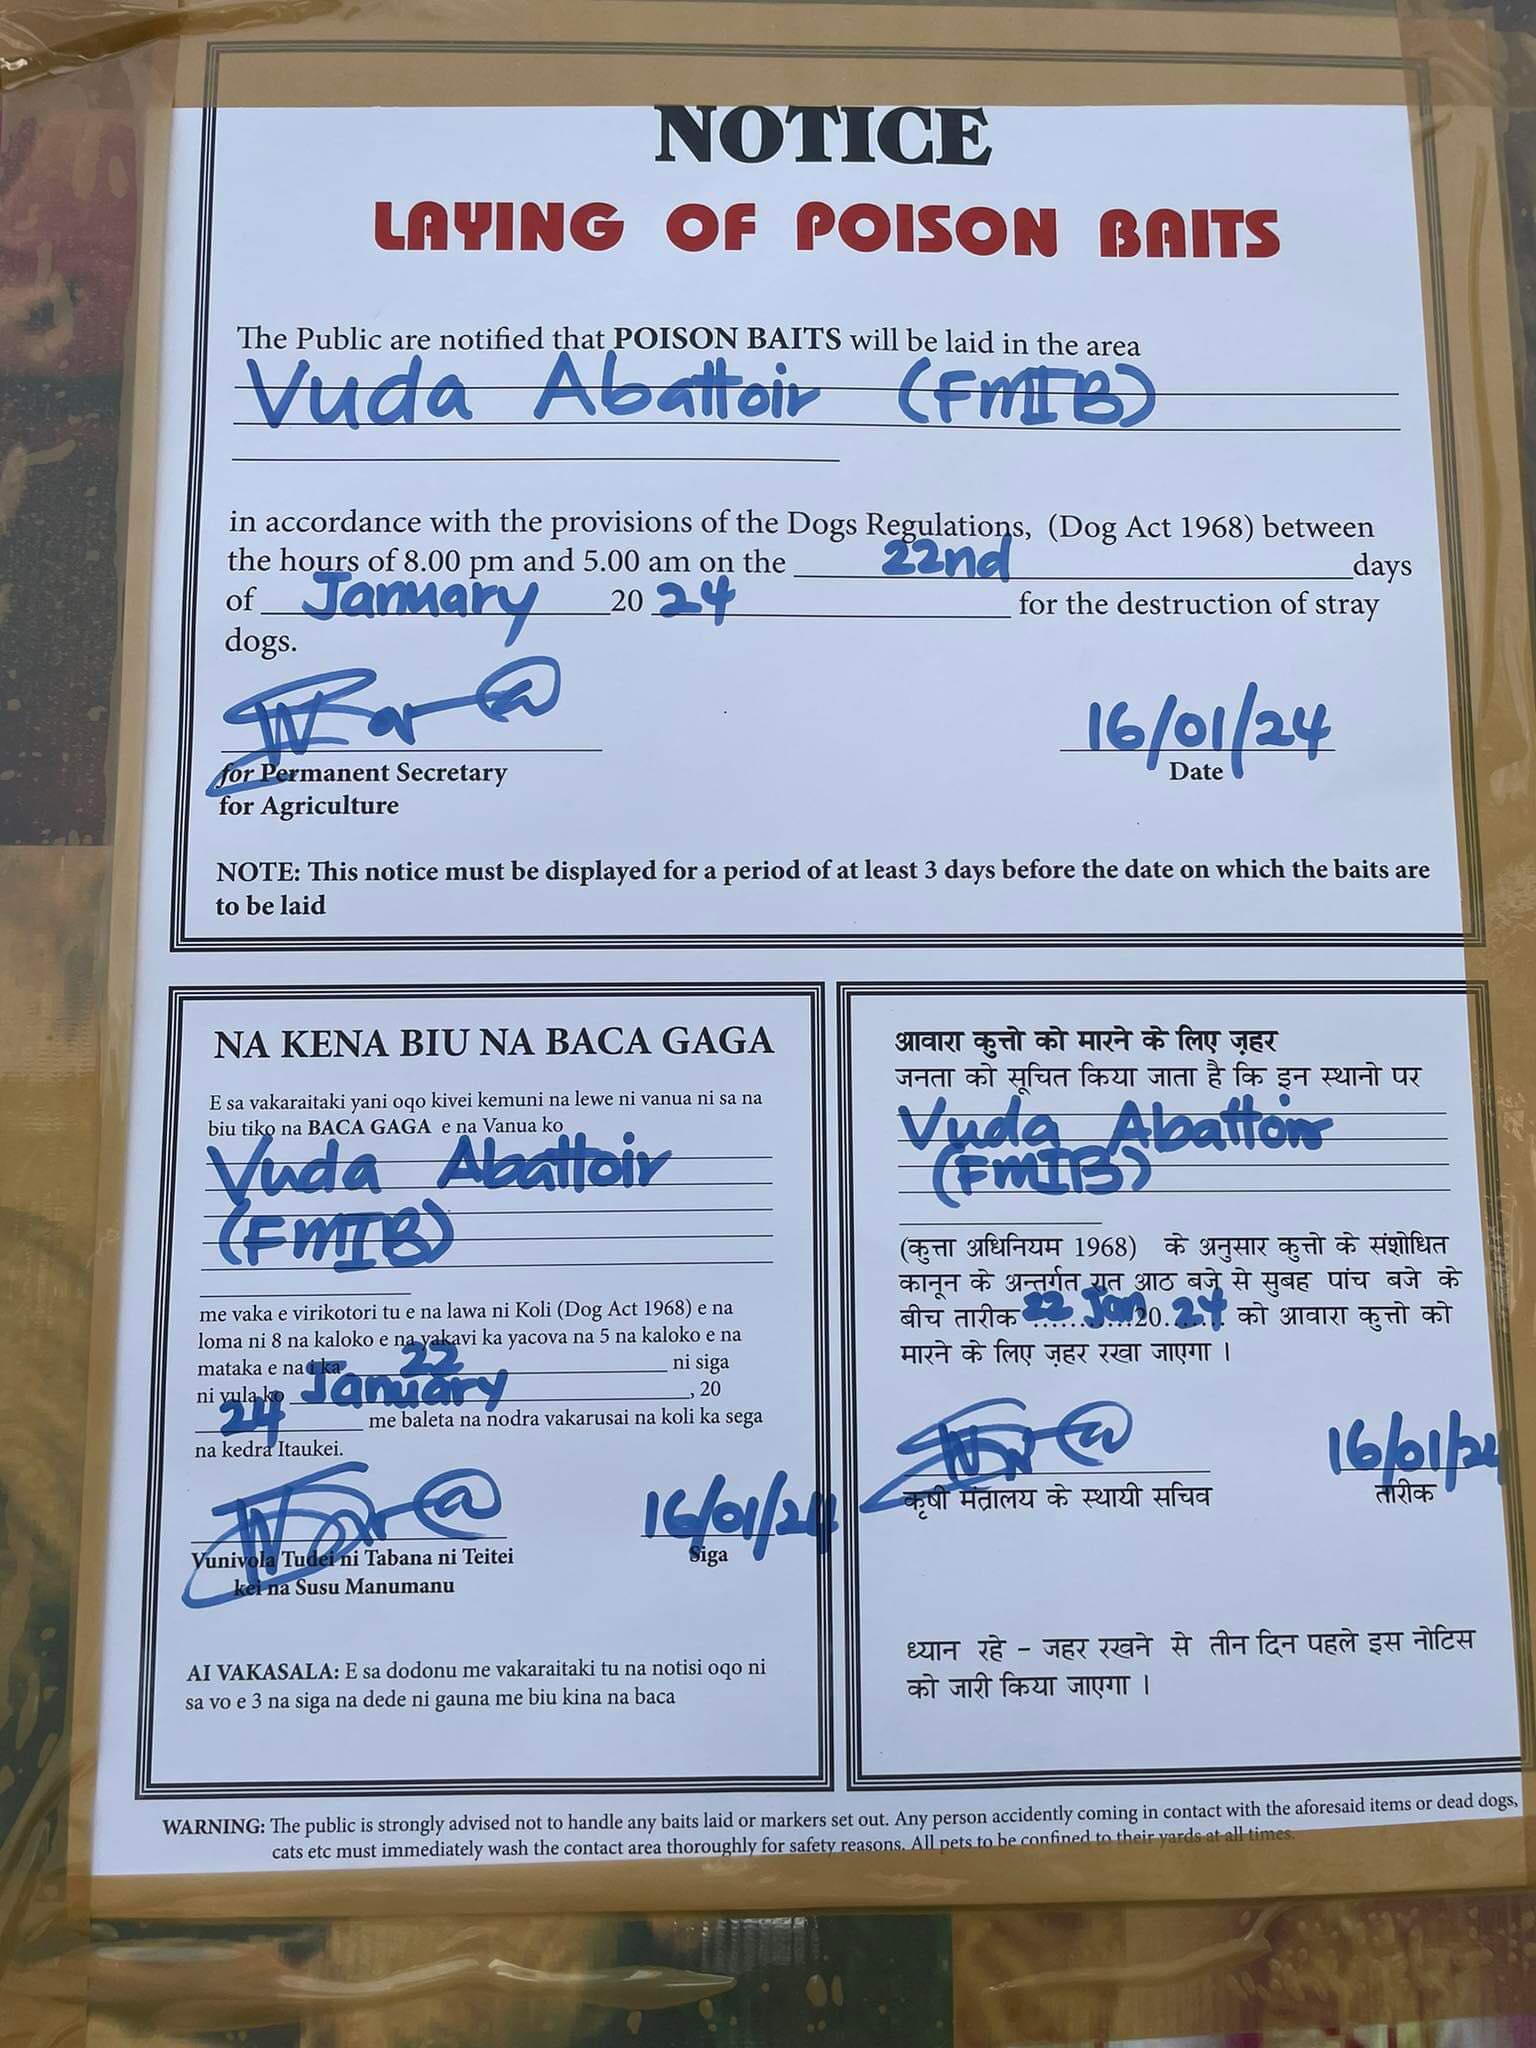 NOTICE
LAYING OF POISON BAITS
The Public are notified that POISON BAITS will be laid in the area
Vuda Abattoir (FMIB)
in accordance with the provisions of the Dogs Regulations, (Dog Act 1968) between
the hours of 8.00 pm and 5.00 am on the 22nd days
of January 20 24 for the destruction of stray
dogs.
16/01/24
for Permanent Secretary
for Agriculture
Date
NOTE: This notice must be displayed for a period of at least 3 days before the date on which the baits are
to be laid
NA KENA BIU NA BACA GAGA
E sa vakaraitaki yani oqo kivei kemuni na lewe ni vanua ni sa na
biu tiko na BACA GAGA e na Vanua ko
Vuda Abattoir
(FMIB)
me vaka e virikotori tu e na lawa ni Koli (Dog Act 1968) e na
loma ni 8 na kaloko e na yakavi ka yacova na 5 na kaloko e na
mataka e na i ka 22 ni siga
ni vula ko January, 20
24 me baleta na nodra vakarusai na koli ka sega
na kedra Itaukei.
16/01/24
Vunivola Tudei ni Tabana ni Teitei
kei na Susu Manumanu
Siga
AI VAKASALA: E sa dodonu me vakaraitaki tu na notisi oqo ni
sa vo e 3 na siga na dede ni gauna me biu kina na baca
आवारा कुत्तो को मारने के लिए ज़हर
जनता को सूचित किया जाता है कि इन स्थानो पर
Vuda Abattoir
(FMIB)
(कुत्ता अधिनियम 1968) के अनुसार कुत्तो के संशोधित
कानून के अन्तर्गत रात आठ बजे से सुबह पांच बजे के
बीच तारीक 22 Jan 20 24 को आवारा कुत्तो को
मारने के लिए ज़हर रखा जाएगा ।
16/01/24
कृषी मंत्रालय के स्थायी सचिव
तारीक
ध्यान रहे - जहर रखने से तीन दिन पहले इस नोटिस
को जारी किया जाएगा ।
WARNING: The public is strongly advised not to handle any baits laid or markers set out. Any person accidently coming in contact with the aforesaid items or dead dogs,
cats etc must immediately wash the contact area thoroughly for safety reasons. All pets to be confined to their yards at all times.